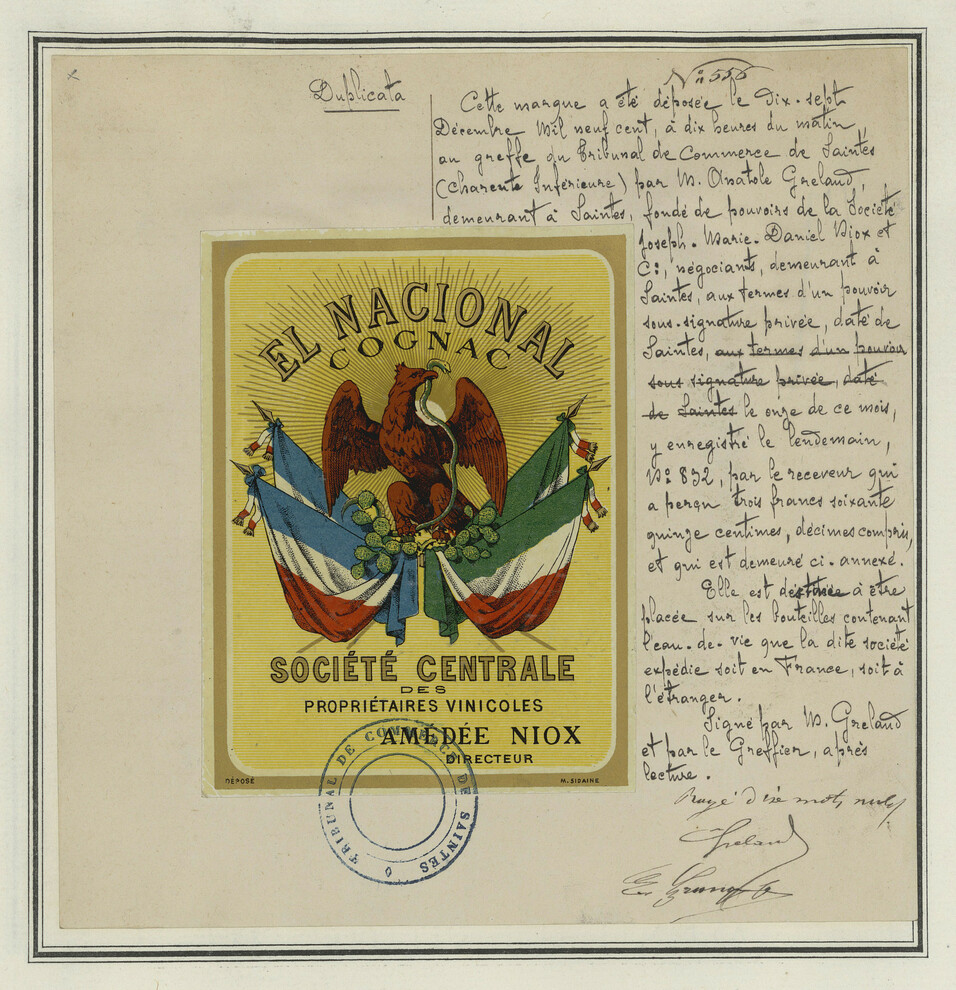 Duplicata
N° 556
Cette marque a été déposée le dix-sept
Décembre Mil neuf cent, à dix heures du matin,
au greffe du Tribunal de Commerce de Saintes
(Charente Inférieure) par M. Anatole Greland,
demeurant à Saintes, fondé de pouvoirs de la Société
Joseph-Marie-Daniel Niox et
Cie, négociants, demeurant à
Saintes, aux termes d'un pouvoir
sous-signature privée, daté de
Saintes, aux termes d'un pouvoir
sous signature privée, daté
de Saintes le onze de ce mois,
y enregistré le lendemain,
N° 832, par le receveur qui
a perçu trois francs soixante
quinze centimes, décimes compris,
et qui est demeuré ci-annexé.
Elle est destinée à être
placée sur les bouteilles contenant
l'eau-de-vie que la dite société
expédie soit en France, soit à
l'étranger.
Signé par M. Greland
et par le Greffier, après
lecture.
Rayé dix mots nuls
Greland
EL NACIONAL
COGNAC
SOCIÉTÉ CENTRALE
DES
PROPRIÉTAIRES VINICOLES
AMÉDÉE NIOX
DIRECTEUR
DÉPOSÉ
M. SIDAINE
TRIBUNAL DE COMMERCE DE SAINTES